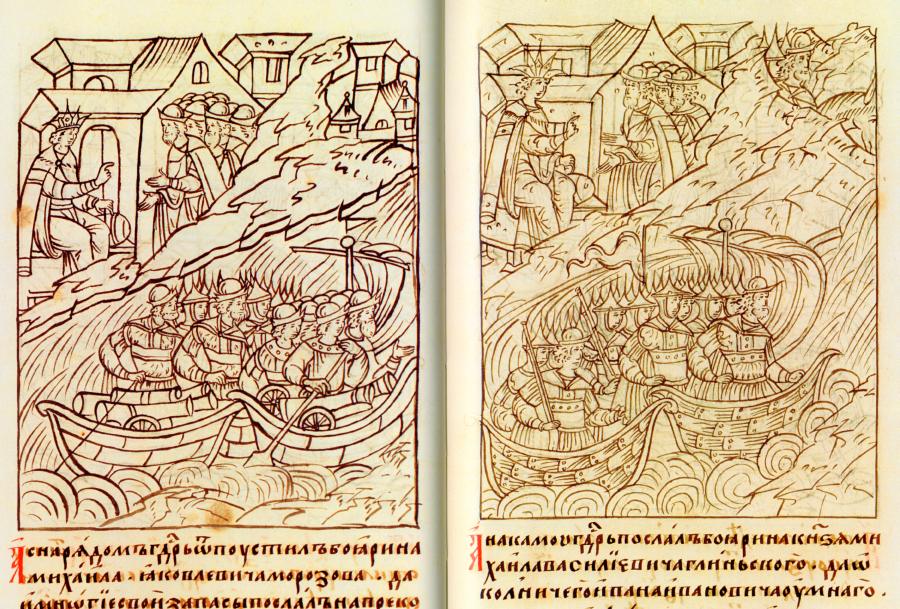 А снарѧдомъ гд҃рь ѿпоустилъ боѧрина
михаила ꙗковлевича морозова . да
и мнѡгїе свои запасы послалъ напреко
А на камоу гд҃рь послалъ боѧрина кн҃зѧ ми
хаила василїевича глиньского . да ѡ
колничего ивана ивановича оумнаго .